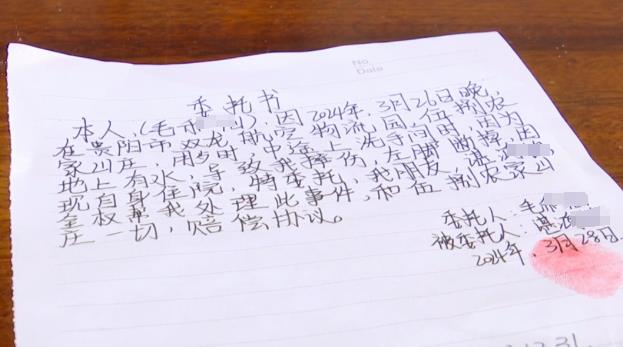 No.
Date
委托书
本人,(毛 ),因2024年,3月26日晚,
在贵阳市双龙航空物流园,伍捌农
家山庄,用歺时,中途上洗手间时,因为
地上有水,导致我摔伤,左脚断掉,因
现自身住院,特委托,我朋友,谌
全权帮我处理此事件,和伍捌农家山
庄一切,赔偿协议。
委托人:毛
被委托人:谌
2024年,3月28日.